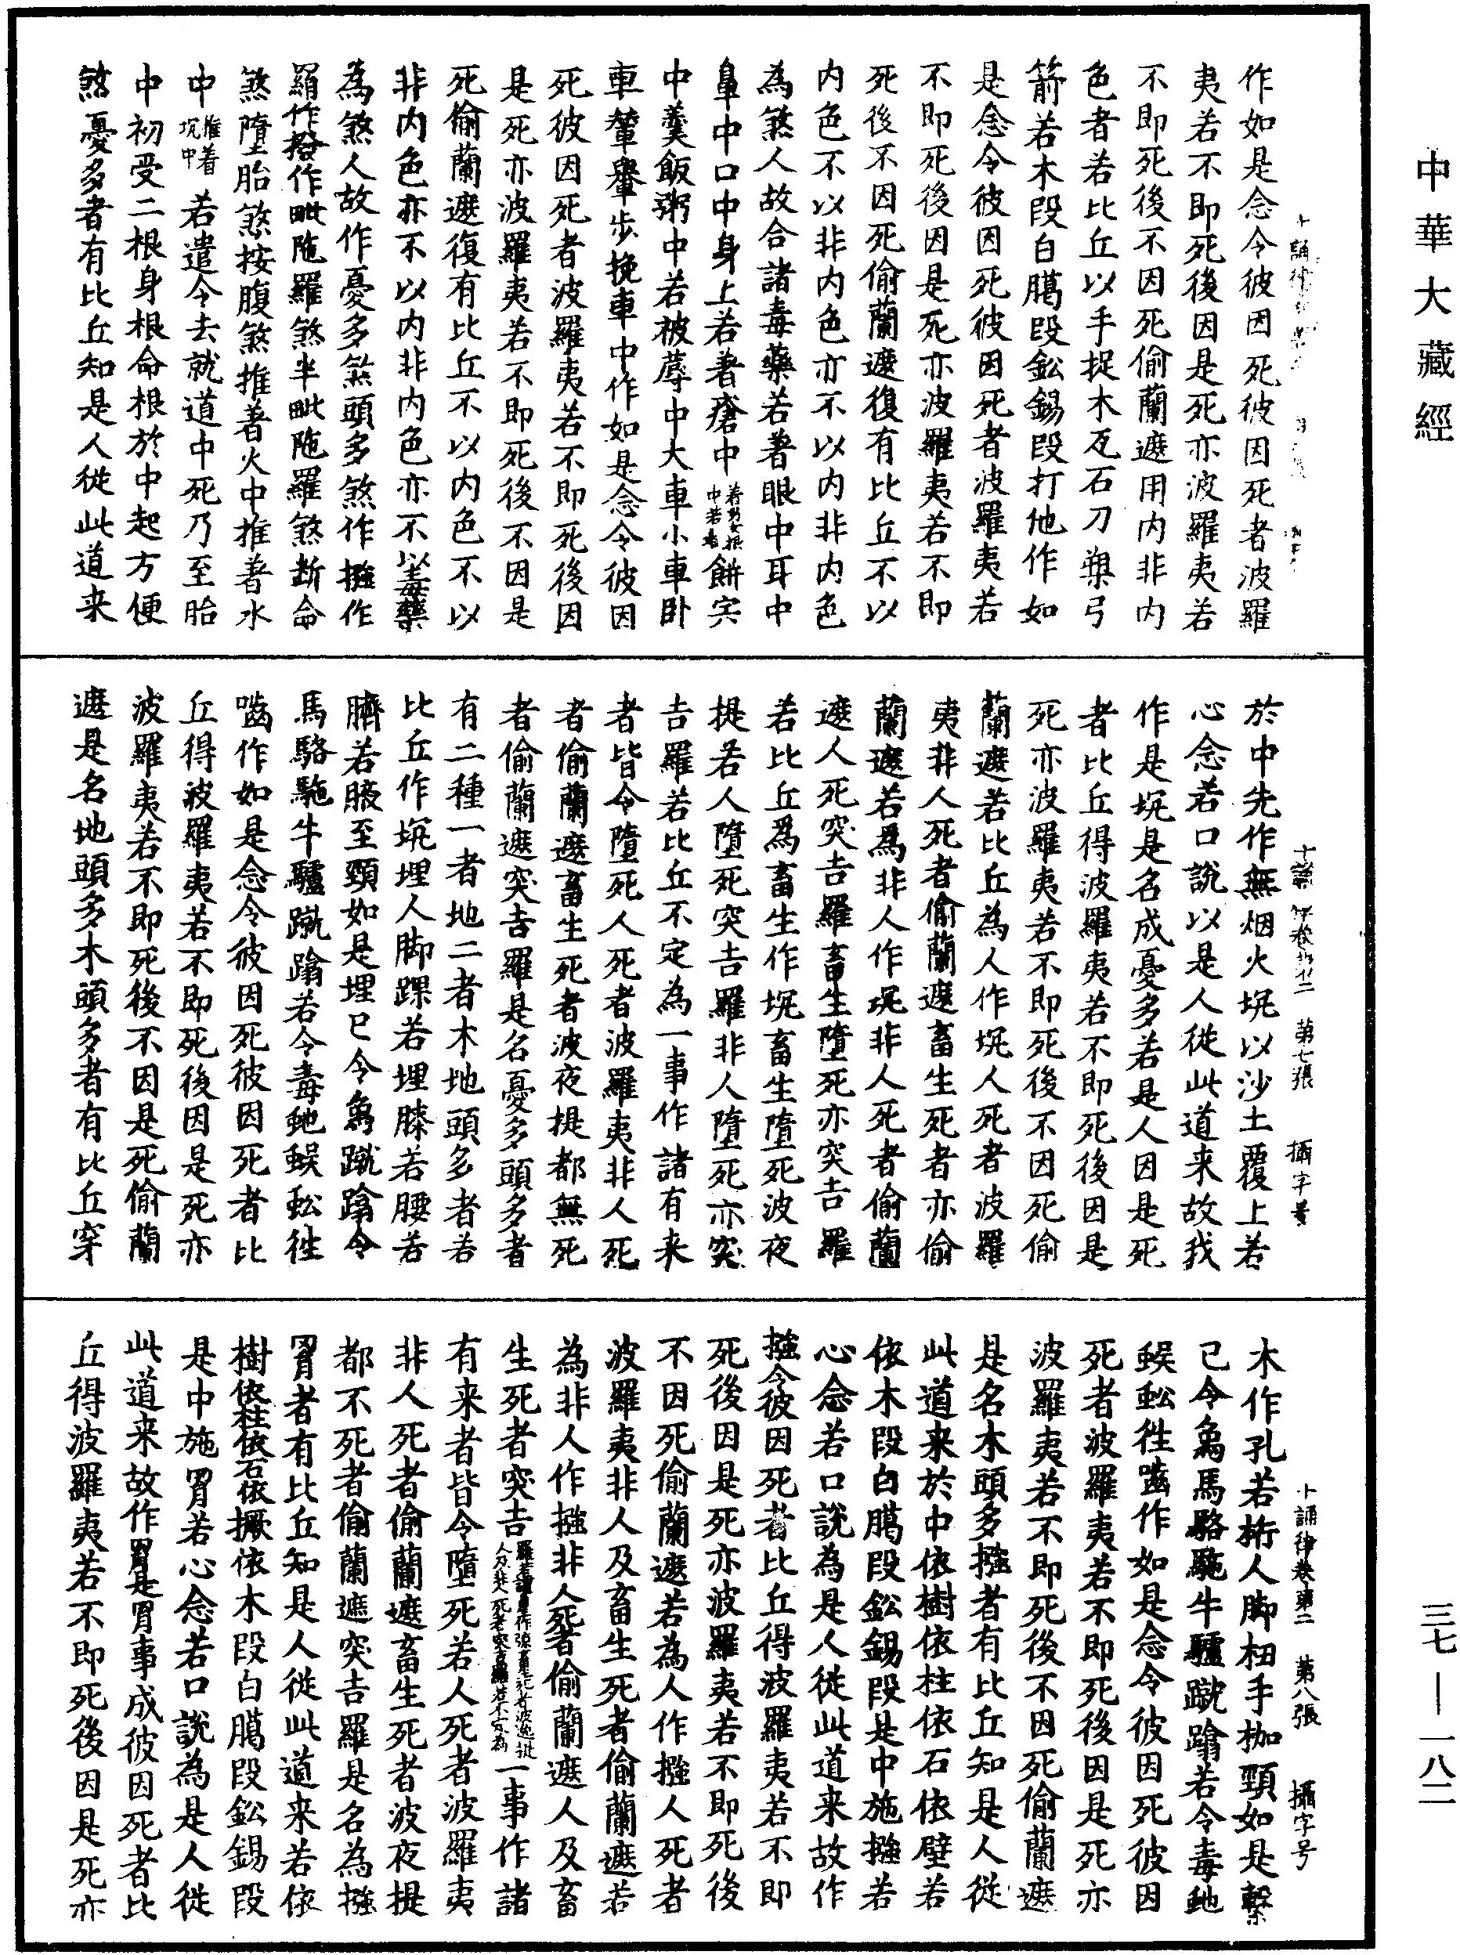 中華大藏經
作如是念令彼因死彼因死者波羅
夷若不即死後因是死亦波羅夷若
不即死後不因死偷蘭遮用内非内
色者若比丘以手捉木瓦石刀槊弓
箭若木段白鑞段鈆錫段打他作如
是念令彼因死彼因死者波羅夷若
不即死後因是死亦波羅夷若不即
死後不因死偷蘭遮復有比丘不以
内色不以非内色亦不以内非内色
為煞人故合諸毒藥若著眼中耳中
鼻中口中身上若著瘡中餅宍
中羹飯粥中若被蓐中大車小車卧
車輦轝步挽車中作如是念令彼因
死彼因死者波羅夷若不即死後因
是死亦波羅夷若不即死後不因是
死偷蘭遮復有比丘不以内色不以
非内色亦不以内非内色亦不以毒藥
為煞人故作憂多煞頭多煞作撜作
羂作撥作毗陁羅煞半毗陁羅煞断命
煞墮胎煞按腹煞推著火中推著水
中推著坑中若遣令去就道中死乃至胎
中初受二根身根命根於中起方便
煞憂多者有比丘知是人從此道来
於中先作無烟火坑以沙土覆上若
心念若口說以是人從此道来故我
作是坑是名成憂多若是人因是死
者比丘得波羅夷若不即死後因是
死亦波羅夷若不即死後不因死偷
蘭遮若比丘為人作坑人死者波羅
夷非人死者偷蘭遮畜生死者亦偷
蘭遮若為非人作坑非人死者偷蘭
遮人死突吉羅畜生墮死亦突吉羅
若比丘為畜生作坑畜生墮死波夜
提若人墮死突吉羅非人墮死亦突
吉羅若比丘不定為一事作諸有来
者皆令墮死人死者波羅夷非人死
者偷蘭遮畜生死者波夜提都無死
者偷蘭遮突吉羅是名憂多頭多者
有二種一者地二者木地頭多者若
比丘作坑埋人脚踝若埋膝若腰若
臍若腋至頸如是埋已令象蹴蹹令
馬駱駞牛驢蹴蹹若令毒虵蜈蚣往
嚙作如是念令彼因死彼因死者比
丘得波羅夷若不即死後因是死亦
波羅夷若不即死後不因是死偷蘭
遮是名地頭多木頭多者有比丘穿
第七張
木作孔若桁人脚杻手枷頸如是繫
已令象馬駱駞牛驢蹴蹹若令毒虵
蜈蚣往嚙作如是念令彼因死彼因
死者波羅夷若不即死後因是死亦
波羅夷若不即死後不因死偷蘭遮
是名木頭多撜者有比丘知是人從
此道来於中依樹依柱依石依壁若
依木段白鑞段鈆錫段是中施撜若
心念若口說為是人從此道来故作
撜令彼因死者比丘得波羅夷若不即
死後因是死亦波羅夷若不即死後
不因死偷蘭遮若為人作撜人死者
波羅夷非人及畜生死者偷蘭遮若
為非人作撜非人死者偷蘭遮人及畜
生死者突吉一事作諸
有来者皆令墮死若人死者波羅夷
非人死者偷蘭遮畜生死者波夜提
都不死者偷蘭遮突吉羅是名為撜
罥者有比丘知是人從此道来若依
樹依柱依石依橛依木段白鑞段鈆錫段
是中施罥若心念若口說為是人從
此道来故作罥是罥事成彼因死者比
丘得波羅夷若不即死後因是死亦
十誦律卷第二 第八張 攝字号
三七—一八二